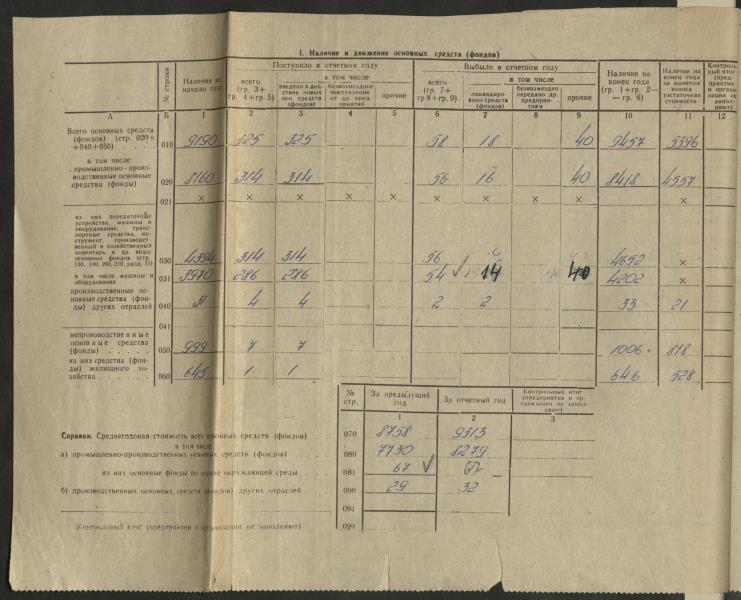 I. Наличие и движение основных средств (фондов)
№ строки
Наличие на начало года
Поступило в отчетном году
всего (гр. 3+ гр. 4+гр. 5)
в том числе
введено в действие новых осн. средств (фондов)
безвозмездное поступление от др. предприятий
прочие
Выбыло в отчетном году
всего (гр. 7+ гр 8+гр. 9)
в том числе
ликвидировано средств (фондов)
безвозмездно передано др. предприятиям
прочие
Наличие на конец года (гр. 1+гр. 2— — гр. 6)
Наличие на конец года за вычетом износа (остаточная стоимость
А Б 1 2 3 4 5 6 7 8 9 10 11 12
Всего основных средств
(фондов) (стр. 020+
+040+050) 010 9190 325 325 58 18 40 9457 5396
в том числе:
промышленно-производственные основные
средства (фонды) 020 8160 314 314 56 16 40 8418 4557
021 × × × × × × × × × × ×
из них передаточные
устройства, машины и
оборудование, транспортные средства, инструмент, производственный и хозяйственный
инвентарь и др. виды
основных фондов (стр.
130, 140, 200, 210, разд. II) 030 4394 314 314 56 4652 ×
в том числе машины и
оборудование 031 3970 286 286 54 14 40 4202 ×
производственные основные средства (фонды) других отраслей 040 31 4 4 2 2 33 21
041
непроизводственные
основные средства
(фонды) 050 999 7 7 1006 818
из них средства (фонды) жилищного хозяйства 060 645 1 1 646 528
№ стр.
За предыдущий год
За отчетный год
Контрольный итог (предприятия и организации не заполняют)
1 2 3
Справки. Среднегодовая стоимость всех основных средств (фондов) 070 8758 9313
в том числе
а) промышленно-производственных основных средств (фондов) 080 7730 8279
из них основные фонды по охране окружающей среды 081 67
б) производственных основных средств (фондов) других отраслей 090 29 32
091
Контрольный итог (предприятия и организации не заполняют) 099